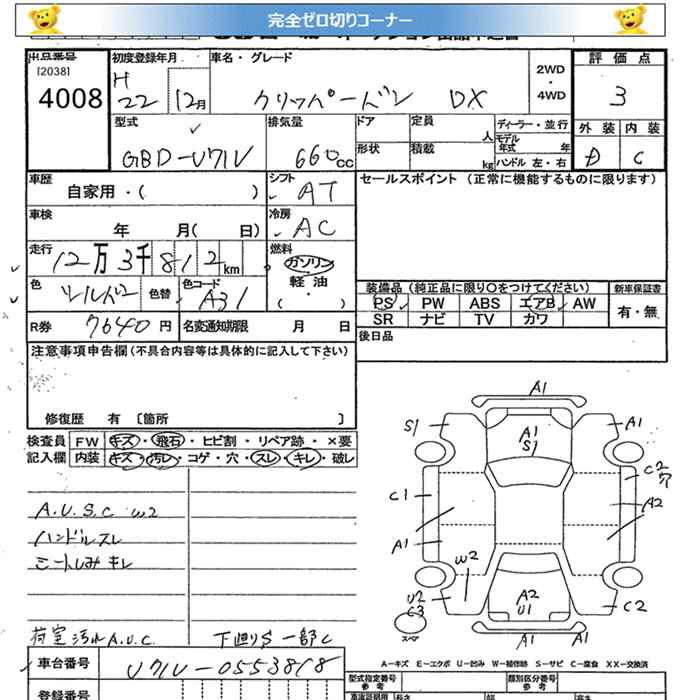 完全ゼロ切りコーナー
出品番号
[2038]
4008
初度登録年月
H
22 12月
車名・グレード
クリッパーバン DX
2WD
・
4WD
評価点
3
型式
GBD-U71V
排気量
660cc
ドア
定員
人
形状
積載
kg
ディーラー・並行
モデル
年式 年
ハンドル 左・右
外装 内装
D C
車歴
自家用・( )
シフト
AT
セールスポイント (正常に機能するものに限ります)
車検
年 月( 日)
冷房
AC
走行
12万3千812km
燃料
ガソリン
軽油
・
( )
色
シルバー
色替
色コード
A31
R券 7640円
名変通知期限 月 日
装備品(純正品に限り○をつけてください)
PS PW ABS エアB AW
SR ナビ TV カワ
新車保証書
有・無
後日品
注意事項申告欄(不具合内容等は具体的に記入して下さい)
修復歴 有 〔箇所 〕
検査員
記入欄
FW キズ・飛石・ヒビ割・リペア跡・×要
内装 キズ・汚レ・コゲ・穴・スレ・キレ・破レ
A.U.S.C W2
ハンドルスレ
シートしみキレ
荷室汚れA.U.C.
下廻りS 一部C
A1
S1
A1
S1
A1
C1
C2
穴
A2
A1
W2
U2
C3
A2
U1
C2
スペア
A1
A-キズ E-エクボ U-凹み W-補修跡 S-サビ C-腐食 XX-交換済
車台番号
U71V-0553818
登録番号
型式指定番号
参考
類別区分番号
参考
長さ
幅
高さ